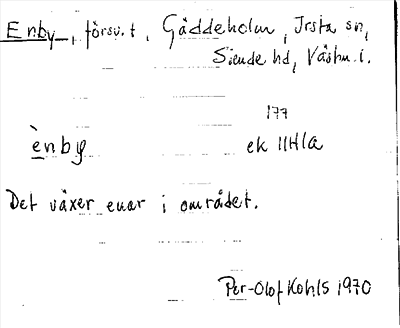 Enby, försv. t., Gäddeholm, Irsta sn,
Siende hd, Västm. l.
177
ènby ek 11H1a
Det växer enar i området.
Per-Olof Kohls 1970